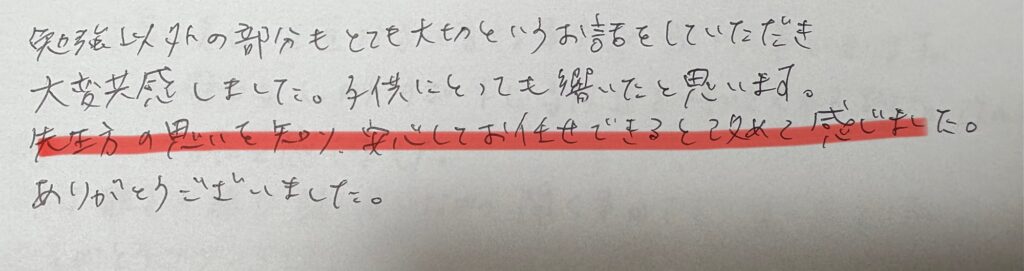 勉強以外の部分もとても大切というお話をしていただき
大変共感しました。子供にとっても響いたと思います。
先生方の思いを知り、安心してお任せできると改めて感じました。
ありがとうございました。